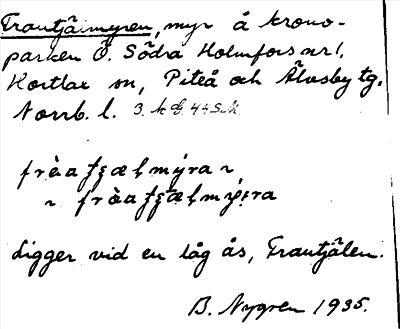 Frautjälmyren, myr å krono-
parken Ö. Södra Holmfors nr 1,
Hortlax sn, Piteå och Älvsby tg.
Norrb. l. 3. k G. 44 S.M.
~ 
Ligger vid en låg ås, Frautjälen.
B. Nygren 1935.